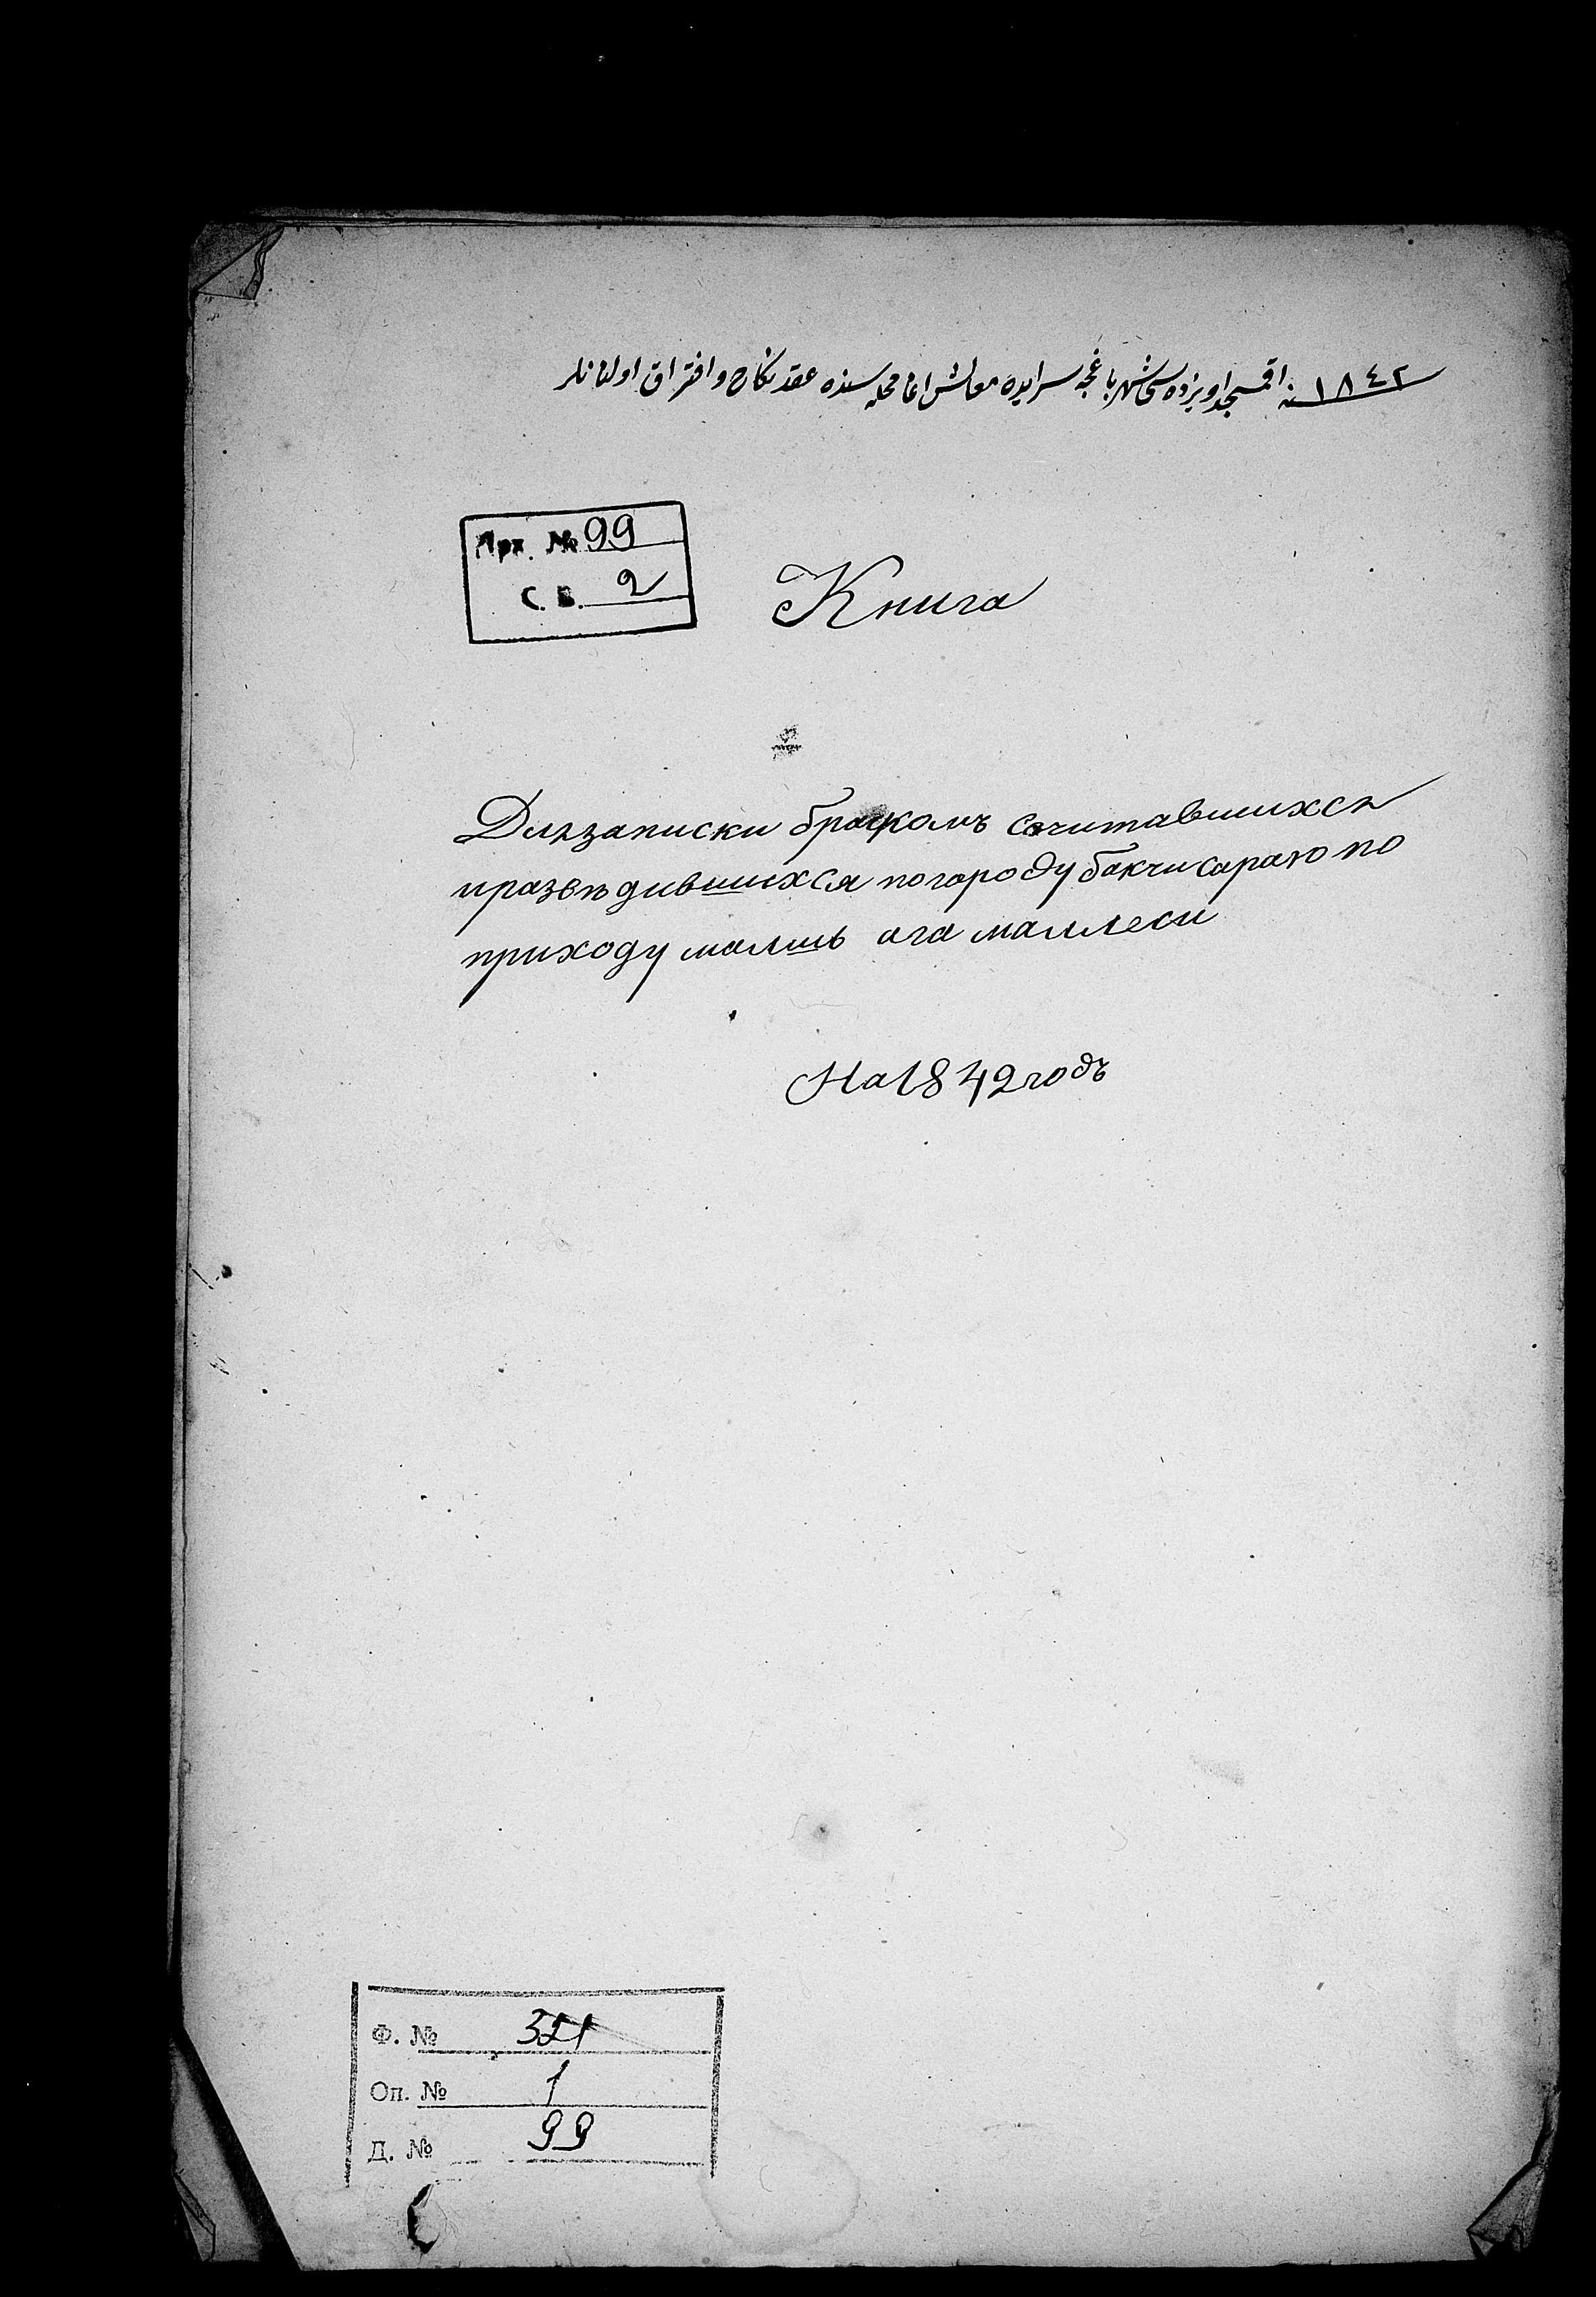 ١٨٤٢ سنه اقمسجد اویزده سی شهر باغچه سرایده معالش اغا محله سنده عقد نکاح و افتراق اولنانلر
Арх. № 99
С. В. 2
Книга
Для записки бракомъ сочитавшихся
и развѣдившихся по городу бакчисараю по
приходу малишь ага маллеси
На 1842 годъ
Ф. № 321
Оп. № 1
Д. № 99